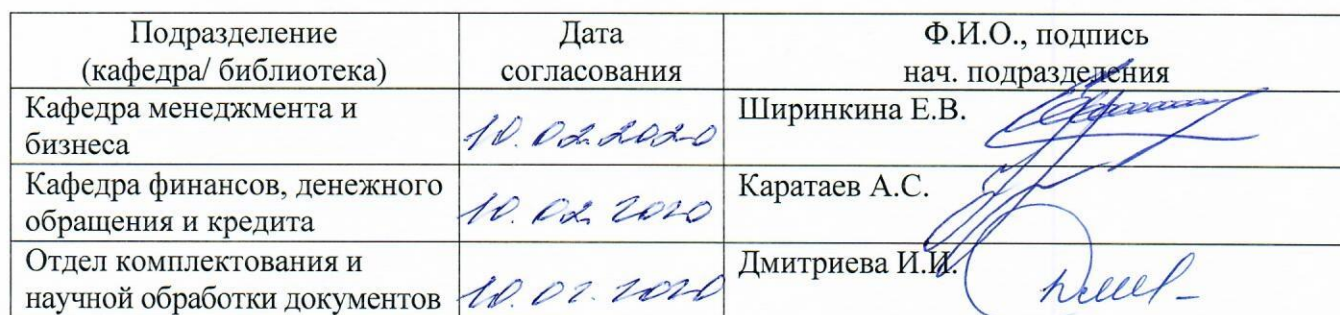 Подразделение
(кафедра/ библиотека)
Дата
согласования
Ф.И.О., подпись
нач. подразделения
Кафедра менеджмента и
бизнеса
10.02.2020
Ширинкина Е.В.
Кафедра финансов, денежного
обращения и кредита
10.02.2020
Каратаев А.С.
Отдел комплектования и
научной обработки документов
10.02.2020
Дмитриева И.И.